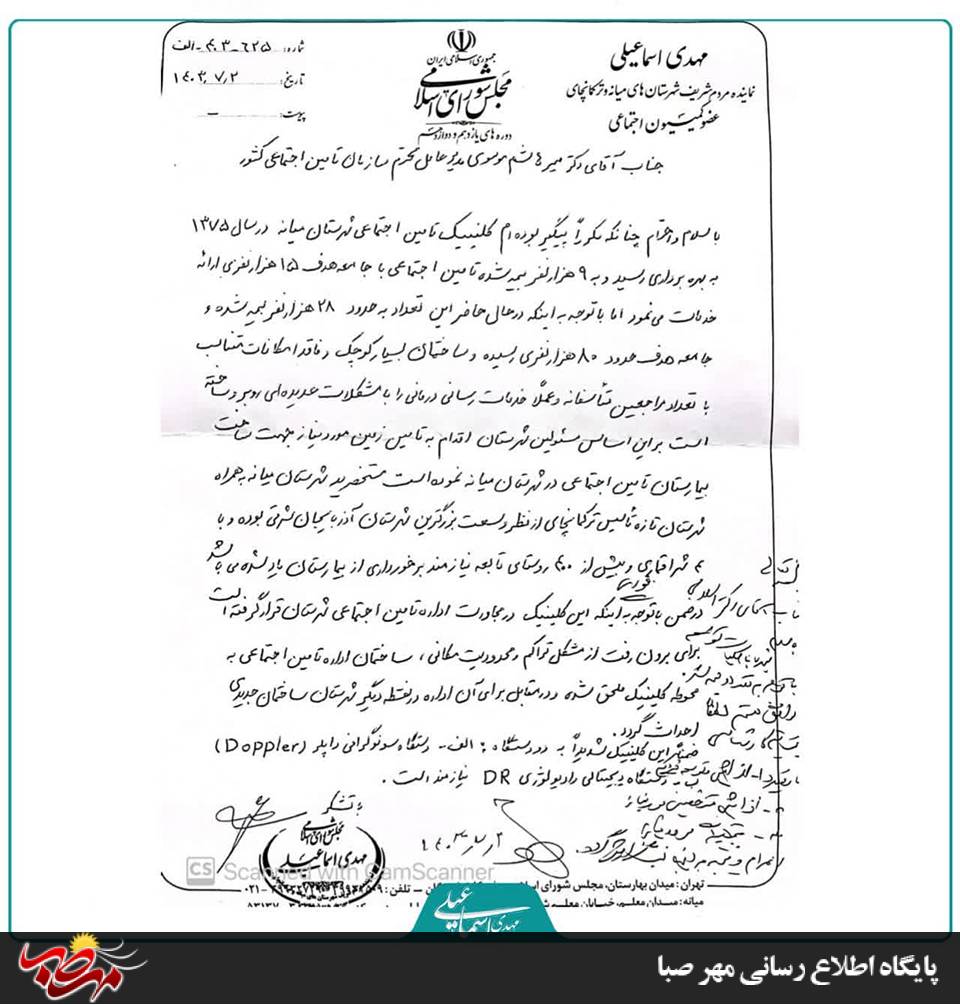 مهدی اسماعیلی
نماینده مردم شریف شهرستان های میانه و ترکمانچای
عضو کمیسیون اجتماعی
جمهوری اسلامی ایران
مجلس شورای اسلامی
دوره های یازدهم و دوازدهم
شماره: ۶۲۵-۴۰۳-الف
تاریخ: ۱۴۰۳/۷/۲
پیوست: –
جناب آقای دکتر میر هاشم موسوی مدیر عامل محترم سازمان تامین اجتماعی کشور
با سلام و احترام چنانکه مکرراً پیگیر بوده ام کلینیک تامین اجتماعی شهرستان میانه در سال ۱۳۷۵
به بهره برداری رسید و به ۹ هزار نفر بیمه شده تامین اجتماعی با جامعه هدف ۱۵ هزار نفری ارائه
خدمات می نمود اما با توجه به اینکه در حال حاضر این تعداد به حدود ۲۸ هزار نفر بیمه شده و
جامعه هدف حدود ۸۰ هزار نفری رسیده و ساختمان بسیار کوچک و فاقد امکانات متناسب
با تعداد مراجعین متأسفانه و عملاً خدمات رسانی درمانی را با مشکلات عدیده ای روبرو ساخته
است بر این اساس مسئولین شهرستان اقدام به تامین زمین مورد نیاز جهت ساخت
بیمارستان تامین اجتماعی در شهرستان میانه نموده است مستحضرید شهرستان میانه به همراه
شهرستان تازه تأسیس ترکمانچای از نظر وسعت بزرگترین شهرستان آذربایجان شرقی بوده و با
شهر اقماری و بیش از ۴۰۰ روستای تابعه نیازمند برخورداری از بیمارستان یاد شده می باشد
در ضمن با توجه به اینکه این کلینیک در مجاورت اداره تامین اجتماعی شهرستان قرار گرفته است
برای برون رفت از مشکل تراکم و محدودیت مکانی، ساختمان اداره تامین اجتماعی به
محوطه کلینیک ملحق شده و در مقابل برای آن اداره در نقطه دیگر شهرستان ساختمان جدیدی
احداث گردد.
ضمناً این کلینیک شدیداً به دو دستگاه: الف- دستگاه سونوگرافی داپلر (Doppler)
ب- دستگاه دیجیتالی رادیولوژی DR نیازمند است.
با تشکر
مجلس شورای اسلامی
مهدی اسماعیلی
CS Scanned with CamScanner
تهران: میدان بهارستان، مجلس شورای
میانه: میدان معلم، خیابان معلم
مهدی اسماعیلی
پایگاه اطلاع رسانی مهر صبا
مهر صبا